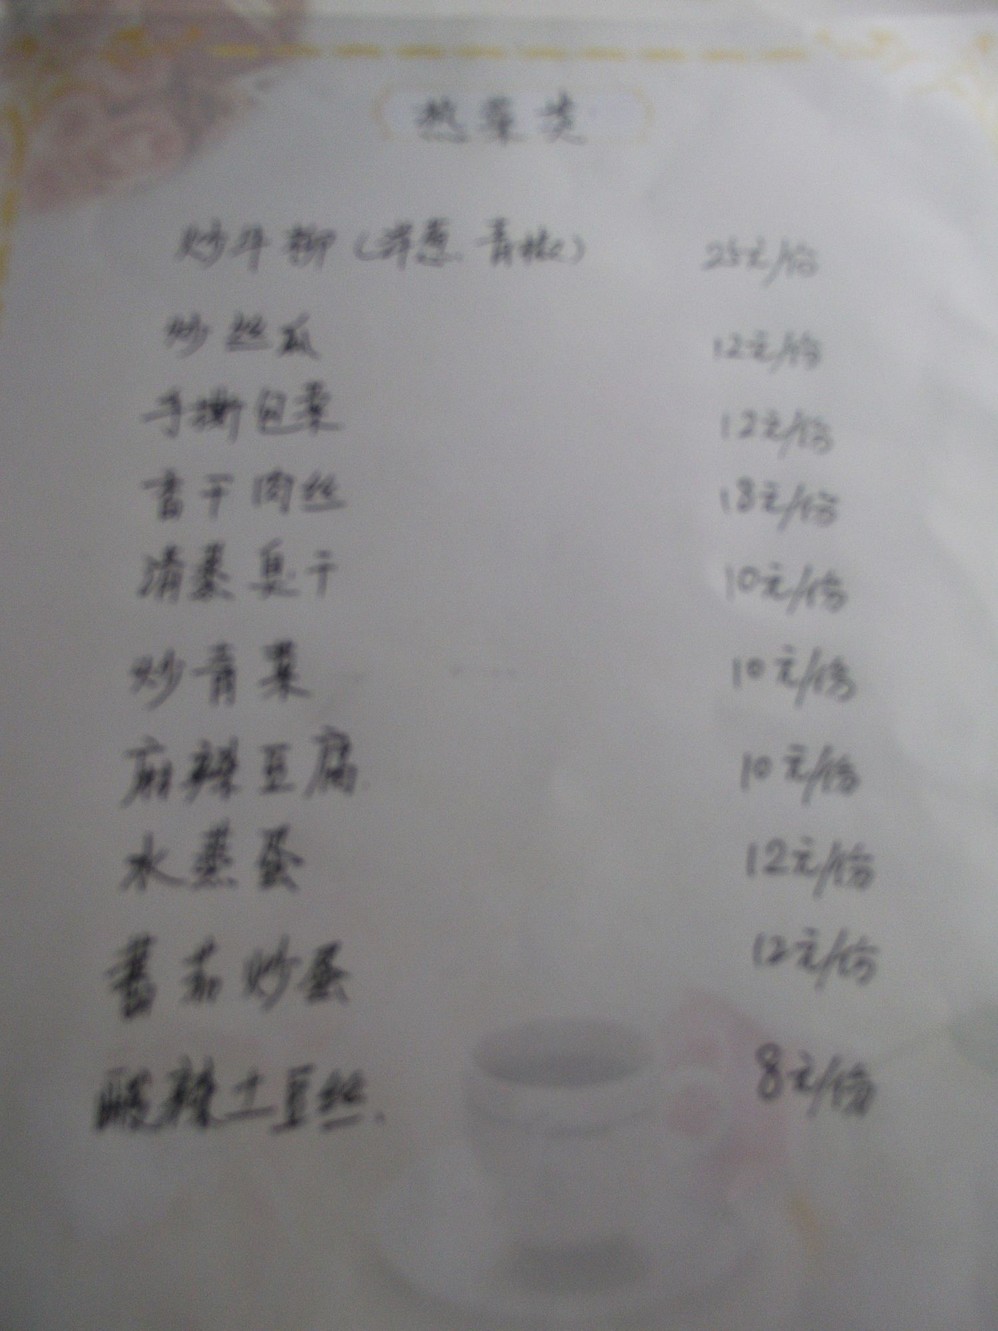 热菜类
炒牛柳（洋葱、青椒） 25元/份
炒丝瓜 12元/份
手撕包菜 12元/份
香干肉丝 18元/份
清蒸臭干 10元/份
炒青菜 10元/份
麻辣豆腐 10元/份
水蒸蛋 12元/份
蕃茄炒蛋 12元/份
酸辣土豆丝 8元/份